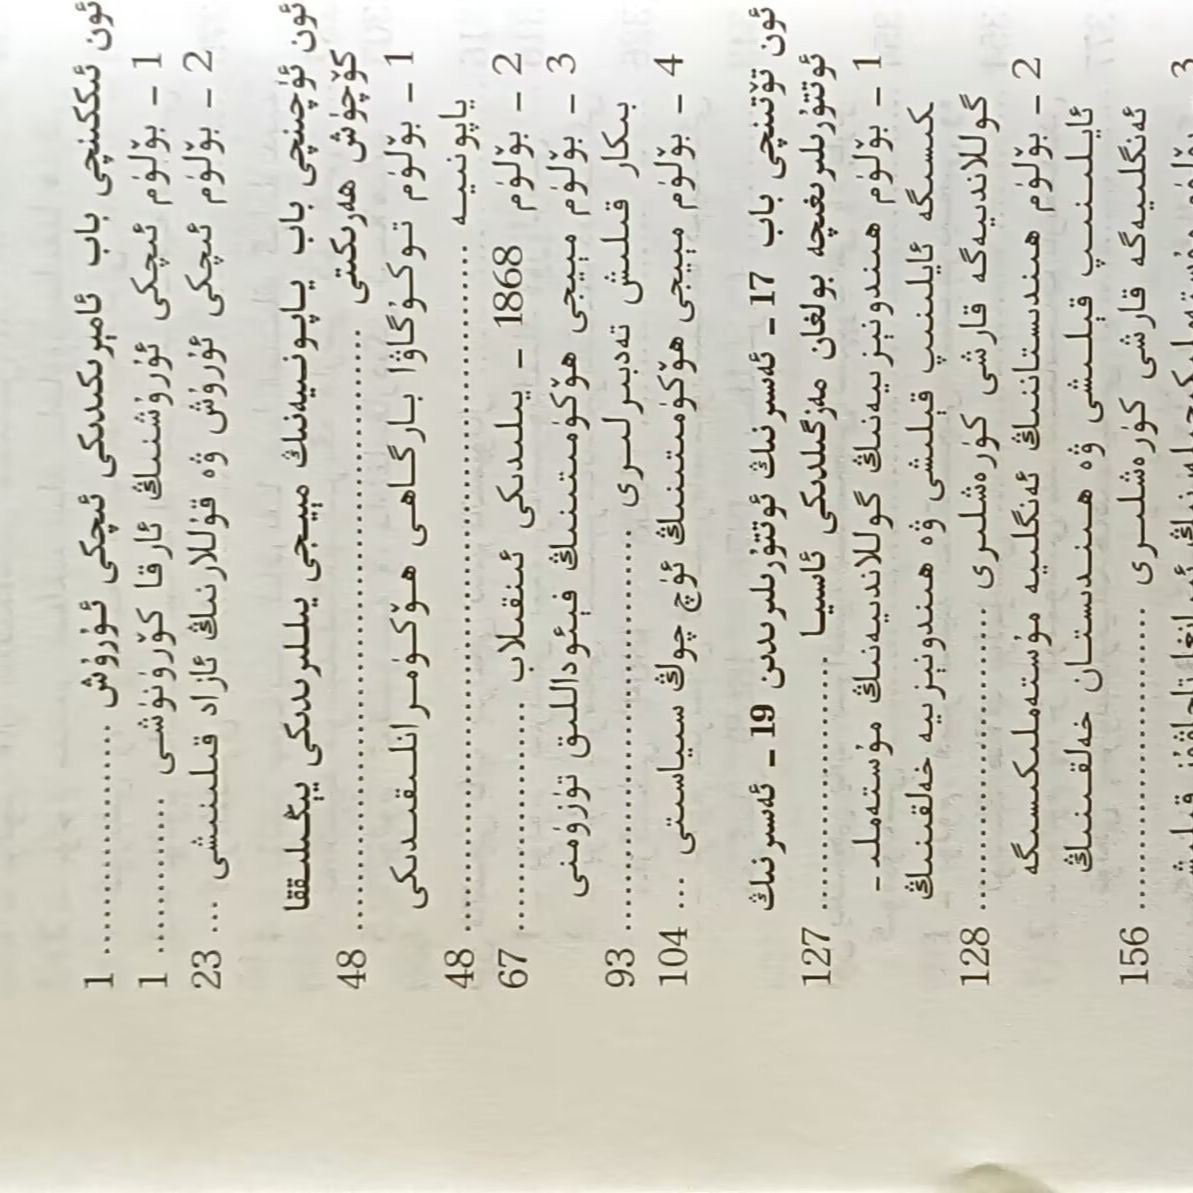 ئون ئىككىنچى باب ئامېرىكىدىكى ئىچكى ئۇرۇش ............... 1
1 - بۆلۈم ئىچكى ئۇرۇشنىڭ ئارقا كۆرۈنۈشى .......... 1
2 - بۆلۈم ئىچكى ئۇرۇش ۋە قۇللارنىڭ ئازاد قىلىنىشى ... 23
ئون ئۈچىنچى باب ياپونىيەنىڭ مېيجى يىللىرىدىكى يېڭىلىققا
كۆچۈش ھەرىكىتى ................................ 48
1 - بۆلۈم توكۇگاۋا بارگاھى ھۆكۈمرانلىقىدىكى
ياپونىيە ................................ 48
2 - بۆلۈم 1868 - يىلىدىكى ئىنقىلاب ............... 67
3 - بۆلۈم مېيجى ھۆكۈمىتىنىڭ فېئوداللىق تۈزۈمنى
بىكار قىلىش تەدبىرلىرى ........................ 93
4 - بۆلۈم مېيجى ھۆكۈمىتىنىڭ ئۈچ چوڭ سىياسىتى ... 104
ئون تۆتىنچى باب 17 - ئەسىرنىڭ ئوتتۇرىلىرىدىن 19 - ئەسىرنىڭ
ئوتتۇرىلىرىغىچە بولغان مەزگىلدىكى ئاسىيا ............... 127
1 - بۆلۈم ھىندونېزىيەنىڭ گوللاندىيەنىڭ مۇستەملى-
كىسىگە ئايلىنىپ قېلىشى ۋە ھىندونېزىيە خەلقىنىڭ
گوللاندىيەگە قارشى كۈرەشلىرى .................. 128
2 - بۆلۈم ھىندىستاننىڭ ئەنگلىيە مۇستەملىكىسىگە
ئايلىنىپ قېلىشى ۋە ھىندىستان خەلقىنىڭ
ئەنگلىيەگە قارشى كۈرەشلىرى .................. 156
3